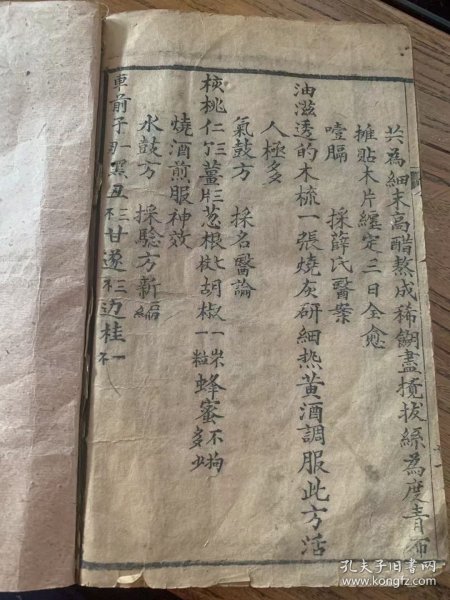 共為細末高醋熬成稀餬盡攪拔絲為度青布
攤貼木片纏定三日全愈
噎膈 採薛氏醫案
油滋透的木梳一張燒灰研細熱黃酒調服此方活
人極多
氣鼓方 採名醫論
核桃仁薑片三葱根七枝胡椒一岁一粒蜂蜜不拘多少
燒酒煎服神效
水鼓方 採驗方新編
車前子黑丑甘遂边桂
孔夫子旧书网
www.kongfz.com